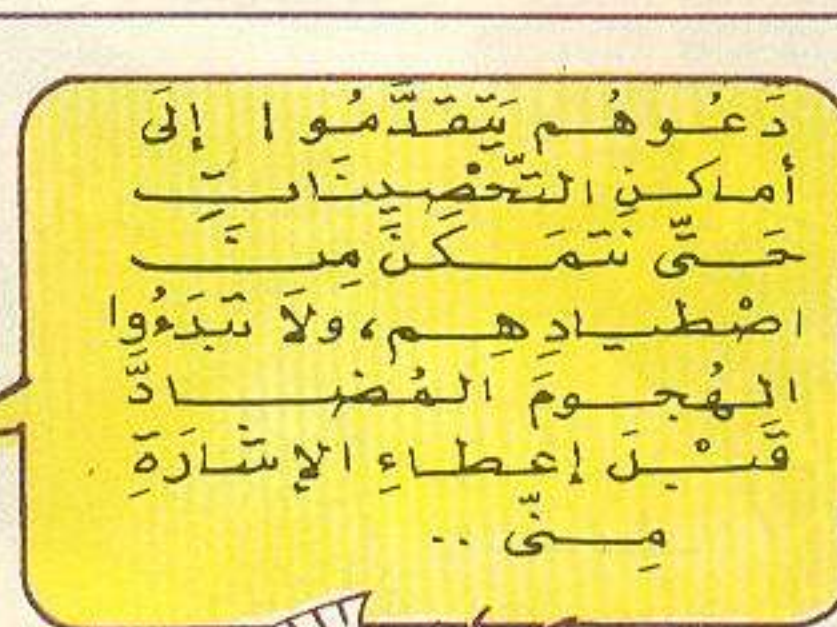 دَعُوهُم يَتَقَدَّمُوا إلَى
أماكنِ التَّحْصِينَاتِ
حَتَّى نَتَمَكَّنَ مِنَ
اصْطيادِهِم، ولَا تَبْدَءُوا
الهُجومَ المُضادَّ
قَبْلَ إعطاءِ الإشَارَةِ
مِنِّى ..